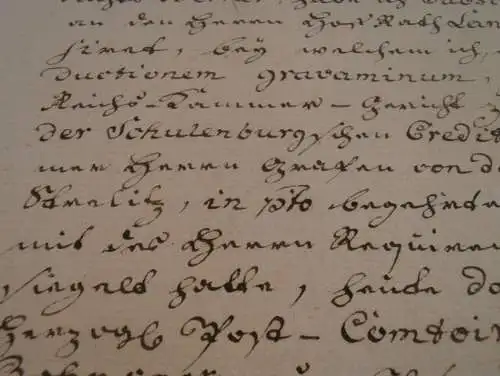 an den Herrn Hoff Rath Lan
siret, bey welchem ich,
ductionem gravaminum,
Reichs-Cammer-Gericht
der Schulenburgschen Credit
mer Herrn Grafen von d
Strelitz, in pto begehrte
mit des Herrn Requiren
siegelt hatte, heute d
Herzogl Post-Comtoir